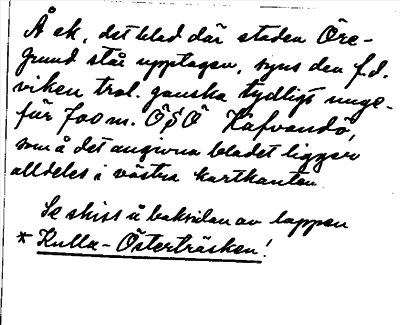 Å ek. det blad där staden Öre-
grund står upptagen, syns den f.d.
viken trol. ganska tydligt unge-
för 700 m. ÖSÖ Kafvandö,
som å det angivna bladet ligger
alldeles i västra kartkanten.
Se skiss å baksidan av lappen
* Kulla-Österträsken!